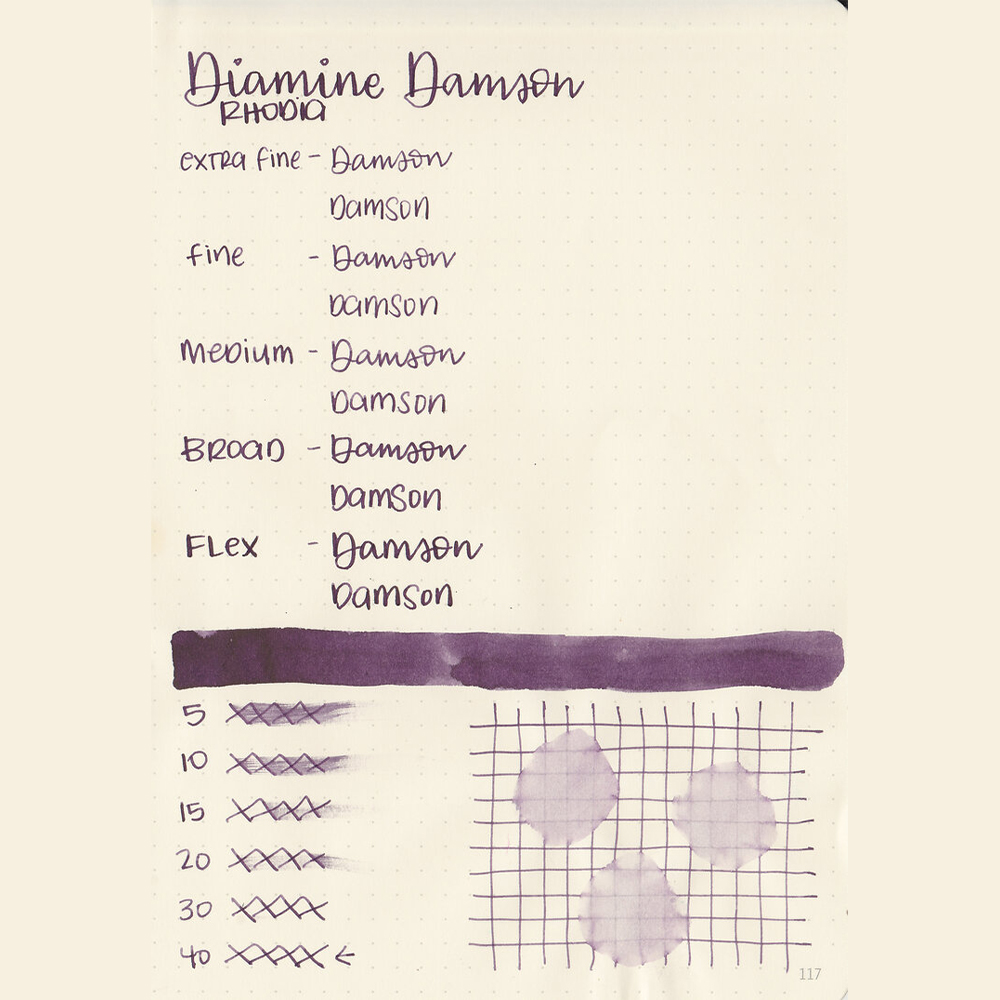 Diamine Damson
RHODIA
extra fine - Damson
Damson
fine - Damson
Damson
Medium - Damson
Damson
BROAD - Damson
Damson
FLex - Damson
Damson
5 XXXX
10 XXXX
15 XXXX
20 XXXX
30 XXXX
40 XXXX ←
117